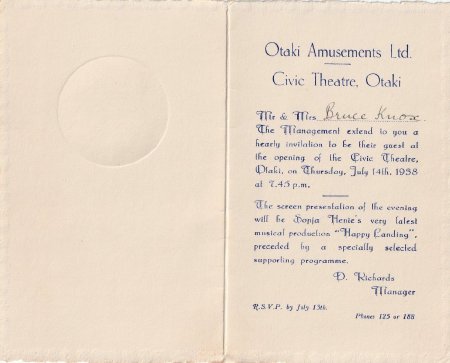 Otaki Amusements Ltd.
Civic Theatre, Otaki
Mr & Mrs Bruce Knox.
The Management extend to you a
hearty invitation to be their guest at
the opening of the Civic Theatre,
Otaki, on Thursday, July 14th, 1938
at 7.45 p.m.
The screen presentation of the evening
will be Sonja Henie's very latest
musical production "Happy Landing",
preceded by a specially selected
supporting programme.
D. Richards
Manager
R.S.V.P. by July 13th.
Phones 125 or 188